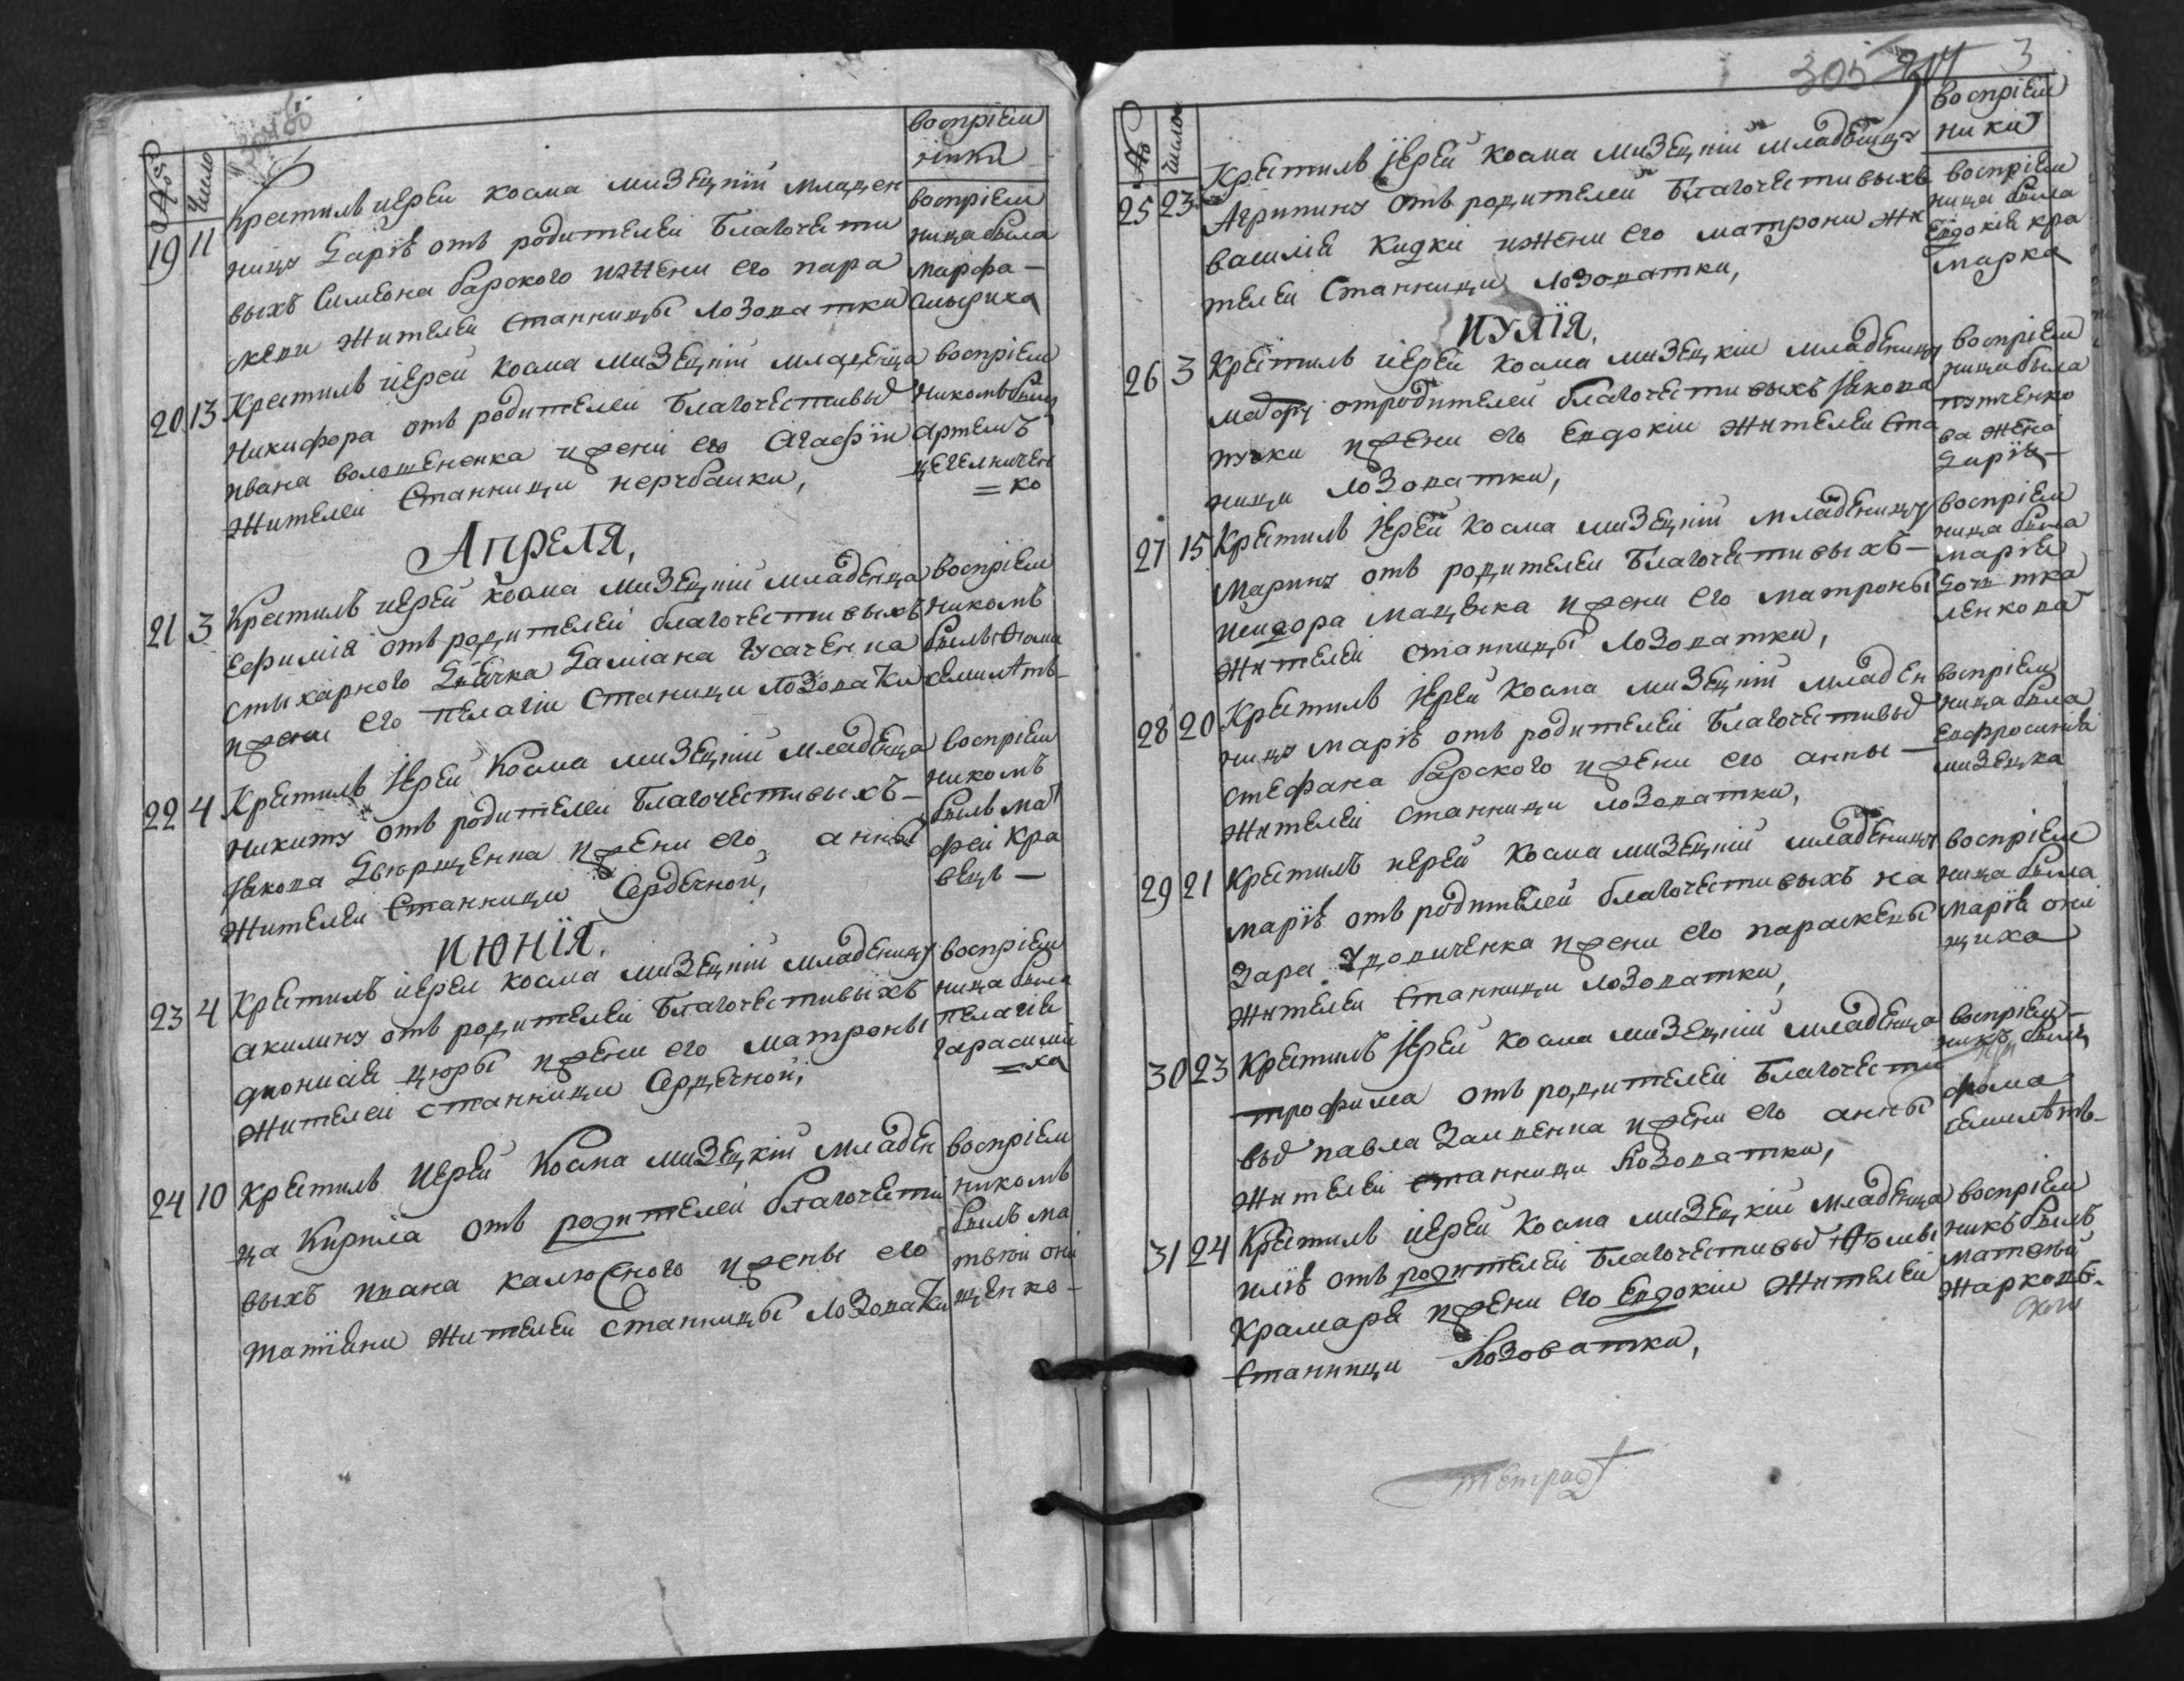 воспрiем
ники
Число
19 11 Крестилъ иерей косма мизецкiй младен
ницу Дарiю отъ родителей Благочести
выхъ Симеона барского ижени его пара
скеви жителей станницы лозоватки
воспрiем
ница была
марфа –
20 13 Крестилъ иерей косма мизецкiй младенца
никифора отъ родителей Благочестивыхъ
ивана волошененка ижени его Агафiи
жителей Станници нерубайки,
воспрiем
никомъ былъ
Артемъ
цегелничен
= ко
Апреля,
21 3 Крестилъ иерей косма мизецкiй младенца
ефимiя отъ родителей благочестивыхъ
стихарного дьячка Дамiана Гусаченка
ижени его пелагiи Станици лозоватки
воспрiем
никомъ
былъ Фома
22 4 Крестилъ Iерей Косма мизецкiй младенца
никиту отъ родителей Благочестивыхъ –
Якова ижени его анны
жителей Станници Сердечной,
воспрiем
никомъ
былъ мат
фей кра
вецъ –
июнiя.
23 4 Крестилъ iерей косма мизецкiй младеницу
акилину отъ родителей Благочестивыхъ
дионисiя цюры ижени его матроны
жителей станници Сердечной,
воспрiем
ница была
пелагiя
гарасими
= ха
24 10 Крестилъ Иерей Косма мизецкiй младен
ца Кирила отъ родителей благочести
выхъ ивана калюсного ижены его
татiяни жителей Станницы лозоватки
воспрiем
никомъ
былъ ма
твей они
щенко –
305 3
воспрiем
ники
Число
25 23 Крестилъ iерей косма мизецкiй младеницу
Агрипину отъ родителей Благочестивыхъ
василiя кидки ижени его матрони жи
телей Станници лозоватки,
воспрiем
ница была
Евдокiя кра
марка
иулiя.
26 3 Крестилъ iерей косма мизецкiй младеницу
отродителей благочестивыхъ Якова
пучки ижени его Евдокiи жителей ста
ници лозоватки,
воспрiем
ница была
ва жена
Дарiя –
27 15 Крестилъ Iерей косма мизецкiй младеницу
Марину отъ родителей Благочестивыхъ –
исидора маценка ижени его матроны
жителей станницы лозоватки,
воспрiем
ница была
марiя
дочь тка
ленкова
28 20 Крестилъ Iерей косма мизецкiй младен
ницу марiю отъ родителей Благочестивыхъ
стефана барского ижени его анны –
жителей станници лозоватки,
воспрiем
ница была
евфросинiя
мизецка
29 21 Крестилъ иерей косма мизецкiй младеницу
марiю отъ родителей благочестивыхъ на
зара Удовиченка ижени его параскевы
жителей Станници лозоватки,
воспрiем
ница была
марiя они
щиха
30 23 Крестилъ Iерей косма мизецкiй младенца
трофима отъ родителей Благочести
выхъ павла ижени его анны
жителей станници лозоватки,
воспрiем –
никъ былъ
фома
31 24 Крестилъ iерей косма мизецкiй младенца
илiю отъ родителей Благочестивыхъ Фомы
Крамаря ижени его Евдокiи жителей
Станници Лозоватки,
воспрiем
никъ былъ
матфей